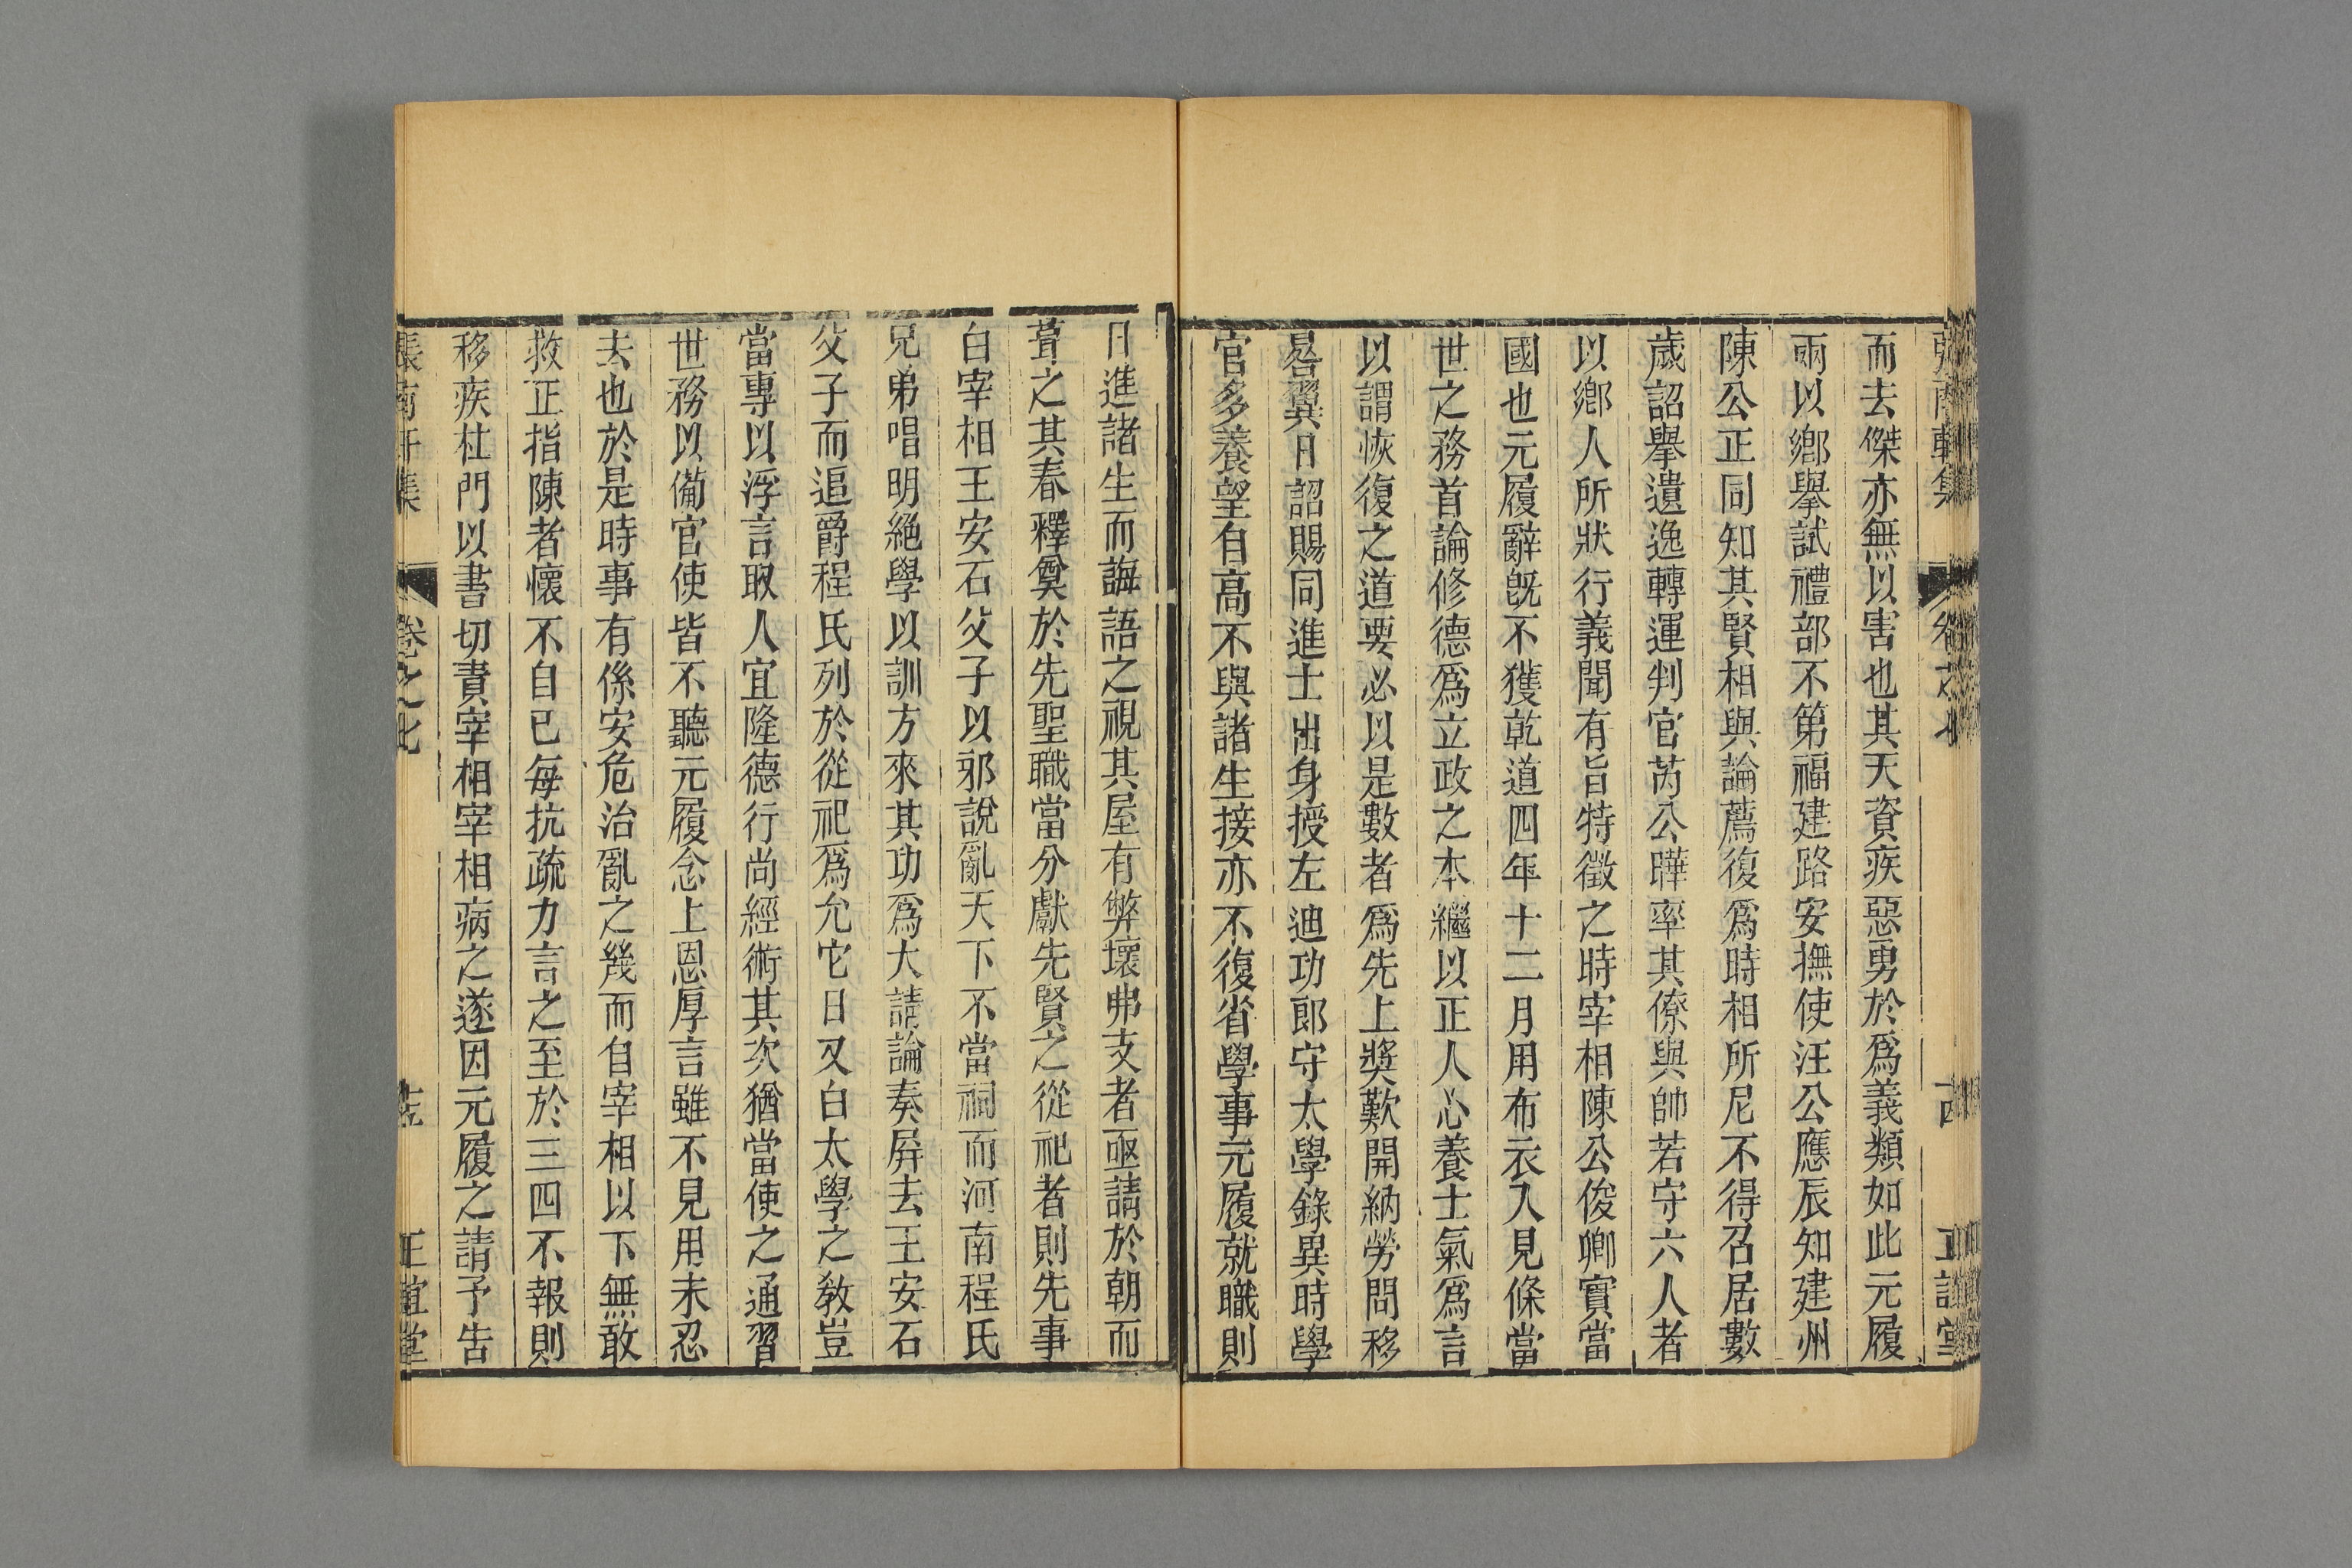 而去傑亦無以害也其天資疾惡勇於爲義類如此元履
兩以鄉舉試禮部不第福建路安撫使汪公應辰知建州
陳公正同知其賢相與論薦復爲時相所尼不得召居數
歲詔舉遺逸轉運判官芮公曄率其僚與帥若守六人者
以鄉人所狀行義聞有旨特徵之時宰相陳公俊卿實當
國也元履辭旣不獲乾道四年十二月用布衣入見條當
世之務首論修德爲立政之本繼以正人心養士氣爲言
以謂恢復之道要必以是數者爲先上獎歎開納勞問移
晷翼日詔賜同進士出身授左迪功郎守太學錄異時學
官多養望自高不與諸生接亦不復省學事元履就職則
日進諸生而誨語之視其屋有弊壞弗支者亟請於朝而
葺之其春釋奠於先聖職當分獻先賢之從祀者則先事
白宰相王安石父子以邪說亂天下不當祠而河南程氏
兄弟唱明絕學以訓方來其功爲大請論奏屏去王安石
父子而追爵程氏列於從祀爲允它日又白太學之敎豈
當專以浮言取人宜隆德行尚經術其次猶當使之通習
世務以備官使皆不聽元履念上恩厚言雖不見用未忍
去也於是時事有係安危治亂之幾而自宰相以下無敢
救正指陳者懷不自已每抗疏力言之至於三四不報則
移疾杜門以書切責宰相宰相病之遂因元履之請予告
張南軒集 卷之七 十五 正誼堂